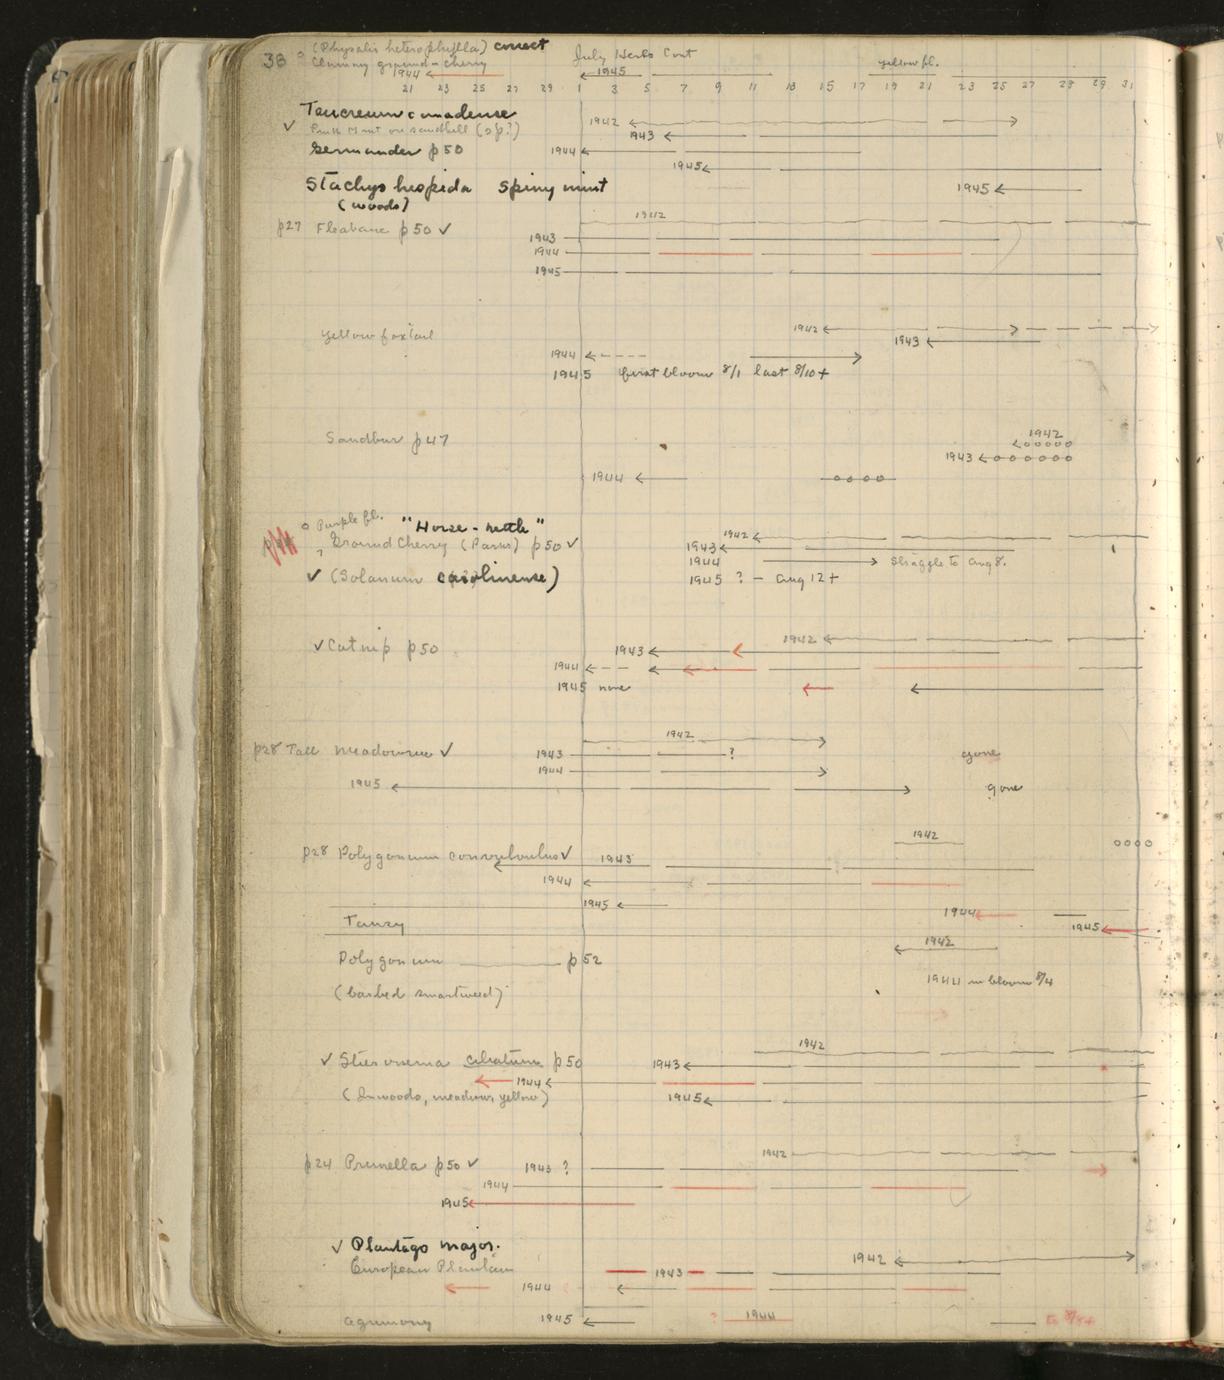 38 (Physalis heterophylla) correct July Herbs Cont yellow fl.
Clammy ground-cherry
1944 1945
21 23 25 27 29 1 3 5 7 9 11 13 15 17 19 21 23 25 27 29 31
Teucreum canadense 1942
✓ Pink Mint on sandhill (sp?) 1943
Germander p50 1944
1945
Stachys hispida spiny mint 1945
(woods)
1942
p27 Fleabane p50 ✓ 1943
1944
1945
Yellow foxtail 1942
1943
1944
1945 first bloom 8/1 last 8/10+
Sandbur p47 1942
1943
1944
Purple fl. "Horse-nettle" 1942
? Ground Cherry (Parns) p50 ✓ 1943
1944 straggle to Aug 8.
✓ (Solanum carolinense) 1945 ? - Aug 12+
✓ Catnip p50 1942
1943
1944
1945 none
1942
p28 Tall meadowrue ✓ 1943 ? gone
1944
1945 gone
1942
p28 Polygonum convolvulus ✓ 1943
1944
1945
Tansy 1944
1945
1942
Polygonum p52
(barbed smartweed) 1944 in bloom 8/4
1942
✓ Stieronema ciliatum p50 1943
1944
(In woods, meadow, yellow) 1945
1942
p24 Prunella p50 ✓ 1943 ?
1944
1945
✓ Plantago major. 1942
European Plantain 1943
1944
Agrimony 1945 ? 1944 to 8/4+